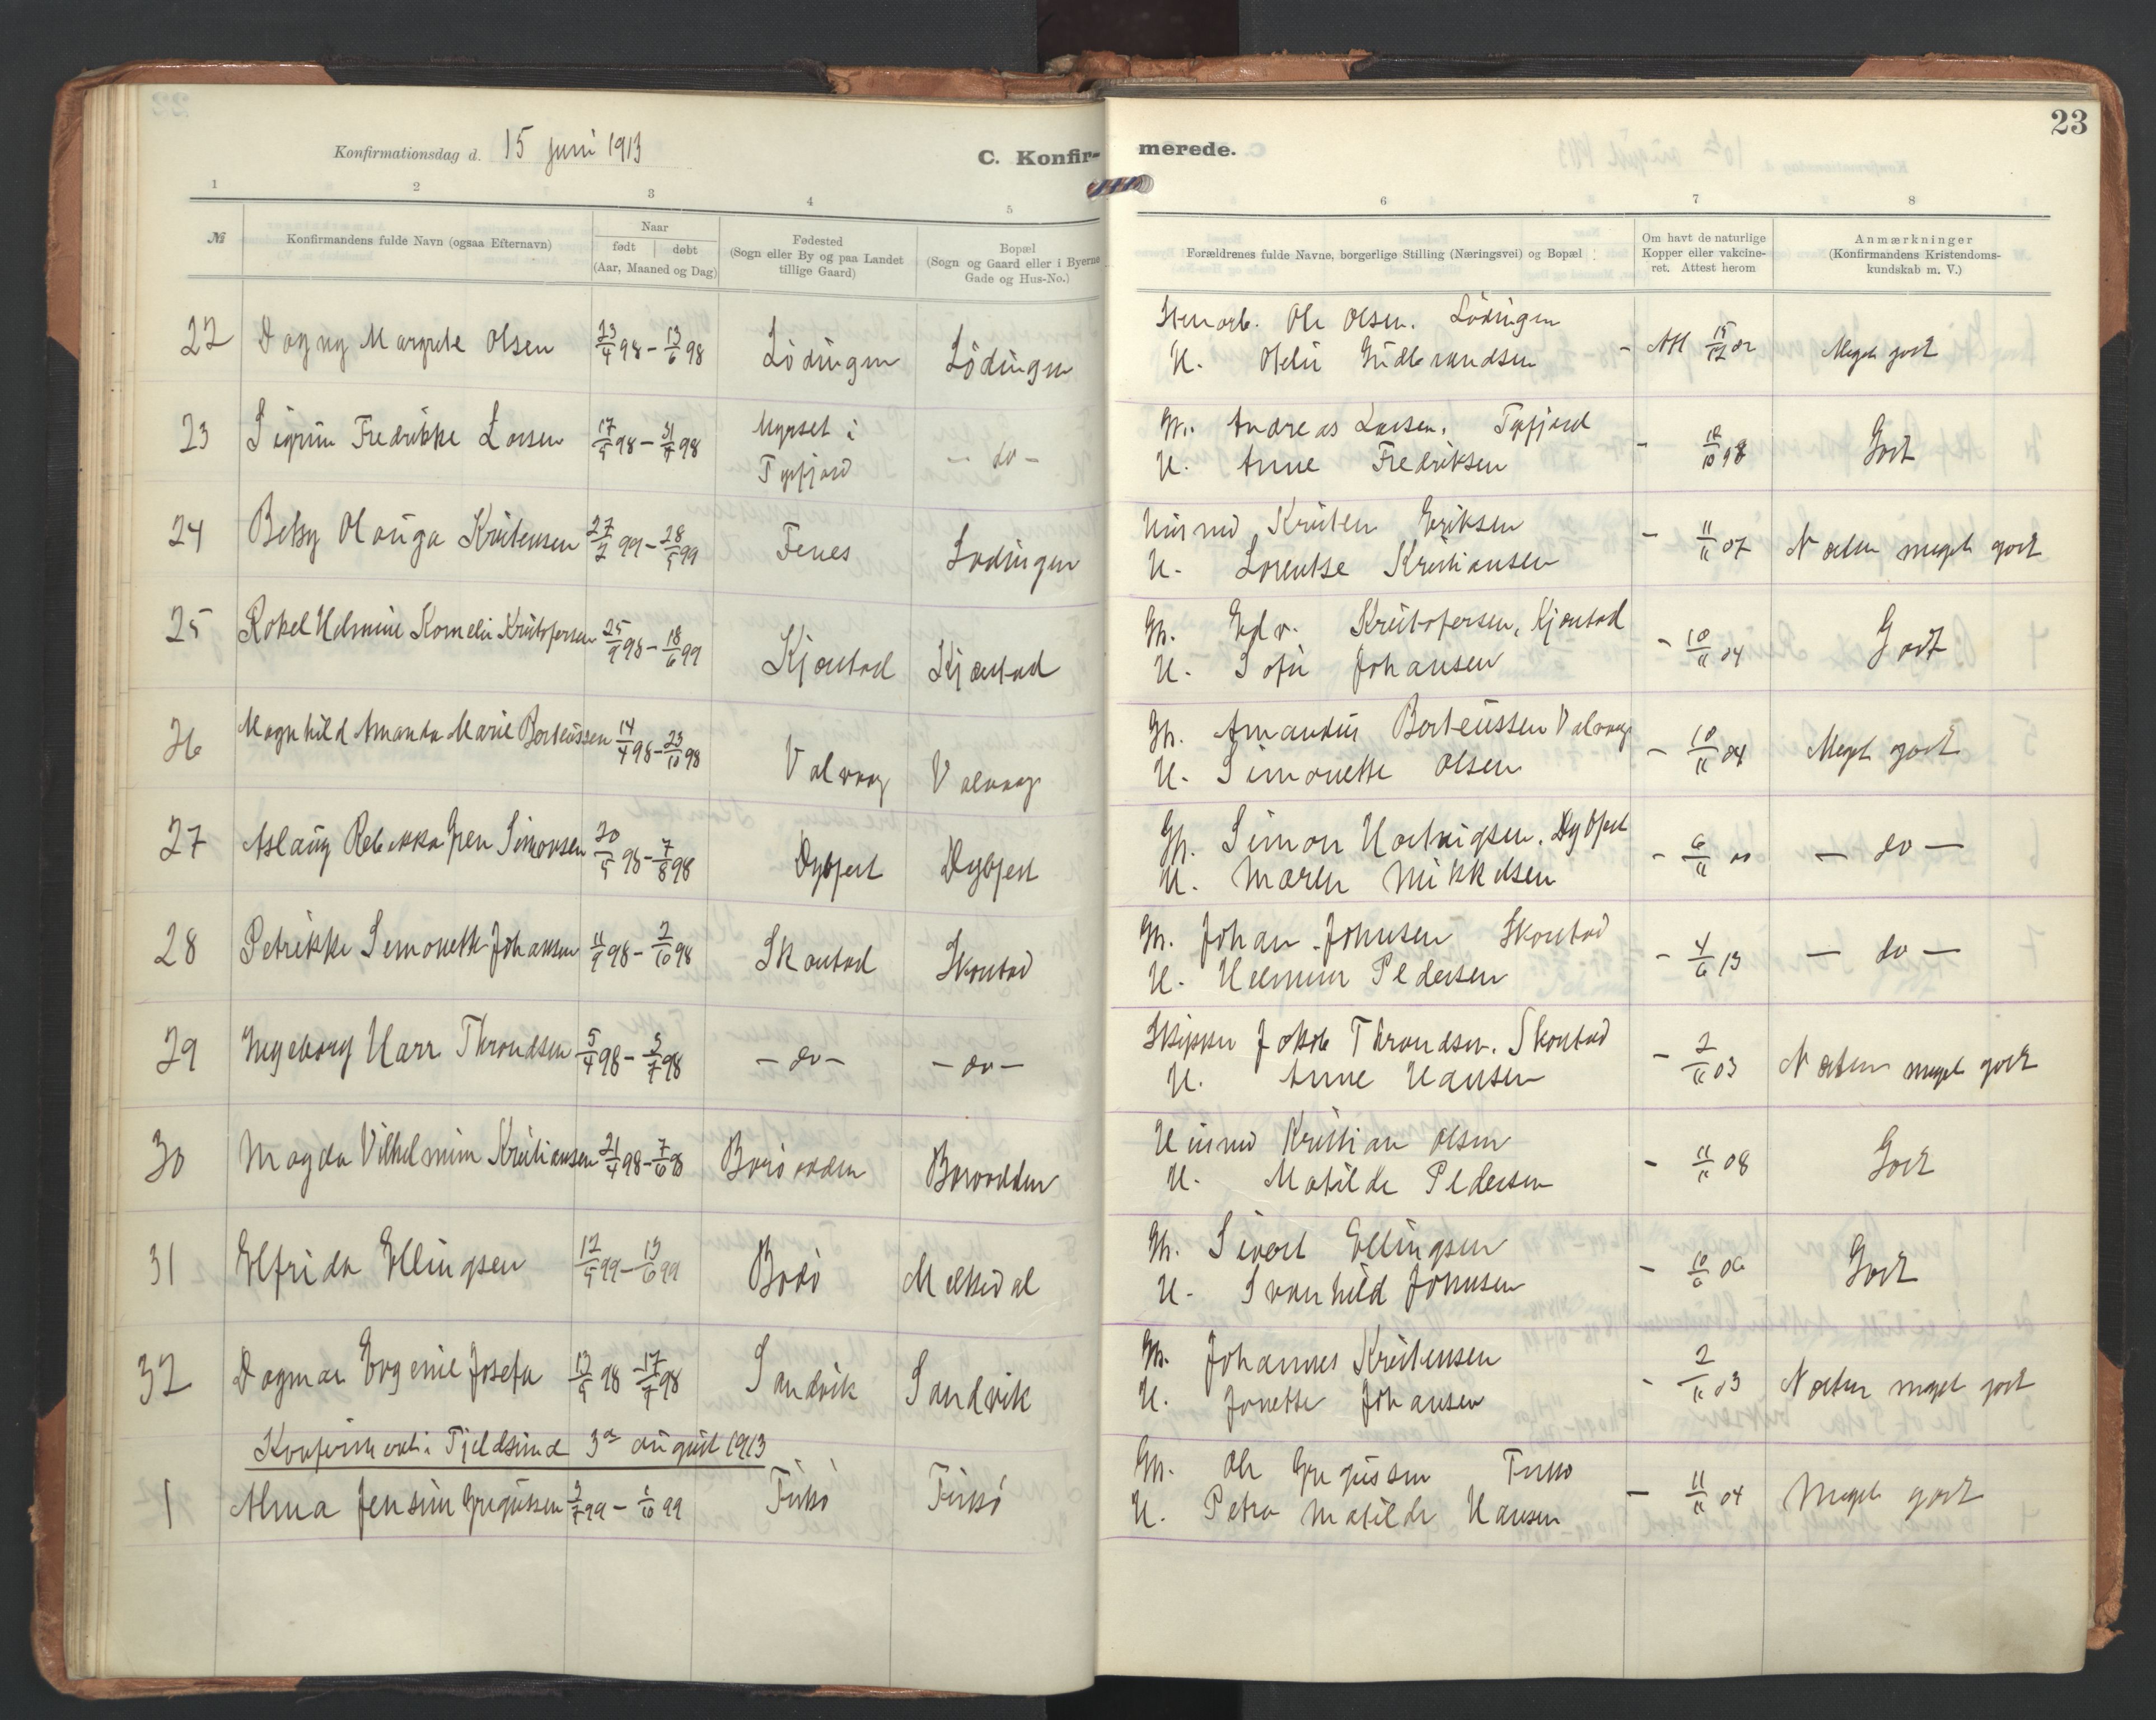 23
Konfirmationsdag d. 15 juni 1913
C. Konfir-
merede.
1 2 3 4 5 6 7 8
№
Konfirmandens fulde Navn (ogsaa Efternavn)
Naar
født | døbt
(Aar, Maaned og Dag)
Fødested
(Sogn eller By og paa Landet
tillige Gaard)
Bopæl
(Sogn og Gaard eller i Byerne
Gade og Hus-No.)
Forældrenes fulde Navne, borgerlige Stilling (Næringsvei) og Bopæl
Om havt de naturlige
Kopper eller vakcine-
ret. Attest herom
Anmærkninger
(Konfirmandens Kristendoms-
kundskab m. V.)
22 Dagny Margrete Olsen 23/4 98 – 13/6 98 Lödingen Lödingen
Ole Olsen. Lödingen
H. Gudbrandsen
– Att 15/12 02 Meget godt
23 Sigrun Fredrikke Larsen 17/5 98 – 31/7 98 Myrset i
Tysfjord – do –
Gb. Andreas Larsen. Tysfjord
H. Anne Fredriksen
– 18/10 98 Godt
24 Betsy Olauga Kristensen 27/2 99 – 28/5 99 Fenes Lödingen
Husmd Kristen Eriksen
H. Lorentse Kristiansen
– 11/11 07 Næsten meget godt
25 Rakel Helmine Kornelie Kristofersen 25/9 98 – 18/6 99 Kjærstad Kjærstad
Gb. Edv. Kristofersen, Kjærstad
H. Sofie Johansen
– 10/11 04 Godt
26 Magnhild Amanda Marie Berteussen 14/4 98 – 23/10 98 Valvaag Valvaag
Gb. Amandus Berteussen Valvaag
H. Simonette Olsen
– 10/11 04 Meget godt
27 Aslaug Rebekka Simonsen 20/5 98 – 7/8 98 Dybfest Dybfest
Gb. Simon Hartvigsen. Dybfest
H. Maren Mikkelsen
– 6/11 00 – do –
28 Petrikke Simonette Johansen 11/9 98 – 2/10 98 Skarstad Skarstad
Gb. Johan Johnsen Skarstad
H. Helmine Pedersen
– 4/6 13 – do –
29 Ingeborg Harr Throndsen 5/4 98 – 3/7 98 – do – – do –
Skipper Jakob Throndsen. Skarstad
H. Anne Hansen
– 2/11 03 Næsten meget godt
30 Magda Vilhelmine Kristiansen 21/4 98 – 7/6 98 Baröodden Baroodden
Husmd Kristian Olsen
H. Matilde Pedersen
– 11/11 08 Godt
31 Elfrida Ellingsen 12/5 99 – 13/6 99 Barö Melkedal
Gb. Sivert Ellingsen
H. Svanhild Johnsen
– 10/6 06 Godt
32 Dagmar Eugenie Josefa 13/5 98 – 17/7 98 Sandvik Sandvik
Gb. Johannes Kristensen
H. Jonette Johansen
– 2/11 03 Næsten meget godt
Konfirmerte i Fjeldsund 3de august 1913
1 Alma Jensine Gregussen 3/7 99 – 1/10 99
Gb. Ole Gregussen
H. Petra Matilde Hansen
– 11/11 04 Meget godt